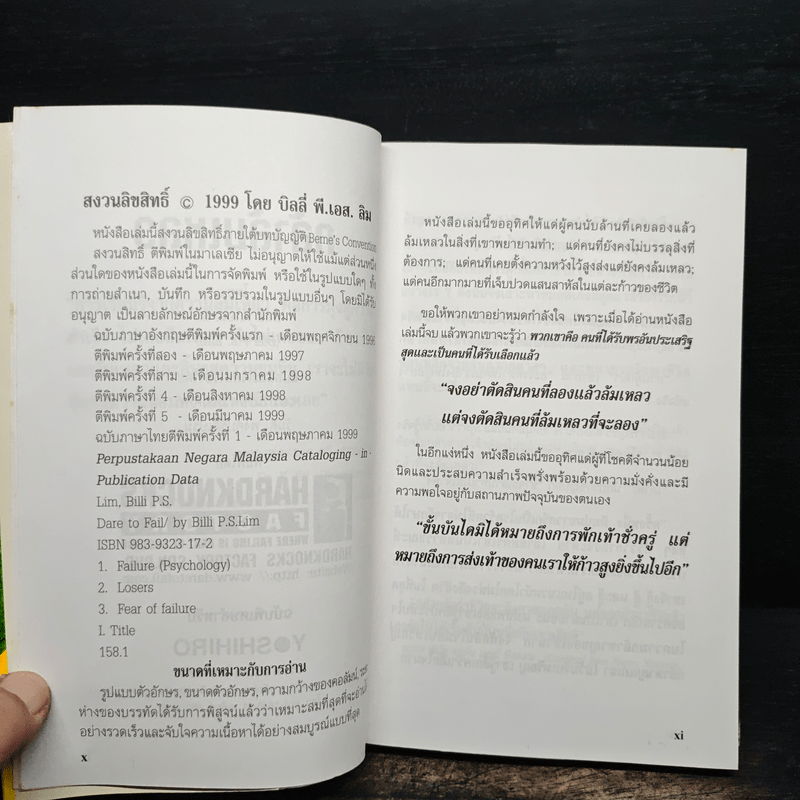 สงวนลิขสิทธิ์ © 1999 โดย บิลลี่ พี.เอส. ลิม
หนังสือเล่มนี้สงวนลิขสิทธิ์ภายใต้บทบัญญัติ Berne's Convention
สงวนสิทธิ์ ตีพิมพ์ในมาเลเซีย ไม่อนุญาตให้ใช้แม้แต่ส่วนหนึ่ง
ส่วนใดของหนังสือเล่มนี้ในการจัดพิมพ์ หรือใช้ในรูปแบบใดๆ ทั้ง
การถ่ายสำเนา, บันทึก หรือรวบรวมในรูปแบบอื่นๆ โดยมิได้รับ
อนุญาต เป็นลายลักษณ์อักษรจากสำนักพิมพ์
ฉบับภาษาอังกฤษตีพิมพ์ครั้งแรก - เดือนพฤศจิกายน 1996
ตีพิมพ์ครั้งที่สอง - เดือนพฤษภาคม 1997
ตีพิมพ์ครั้งที่สาม - เดือนมกราคม 1998
ตีพิมพ์ครั้งที่ 4 - เดือนสิงหาคม 1998
ตีพิมพ์ครั้งที่ 5 - เดือนมีนาคม 1999
ฉบับภาษาไทยตีพิมพ์ครั้งที่ 1 - เดือนพฤษภาคม 1999
Perpustakaan Negara Malaysia Cataloging - in -
Publication Data
Lim, Billi P.S.
Dare to Fail/ by Billi P.S.Lim
ISBN 983-9323-17-2
1. Failure (Psychology)
2. Losers
3. Fear of failure
I. Title
158.1
ขนาดที่เหมาะกับการอ่าน
รูปแบบตัวอักษร, ขนาดตัวอักษร, ความกว้างของคอลัมน์, ระยะ
ห่างของบรรทัดได้รับการพิสูจน์แล้วว่าเหมาะสมที่สุดที่จะอ่านได้
อย่างรวดเร็วและจับใจความเนื้อหาได้อย่างสมบูรณ์แบบที่สุด
x
หนังสือเล่มนี้ขออุทิศให้แด่ผู้คนนับล้านที่เคยลองแล้ว
ล้มเหลวในสิ่งที่เขาพยายามทำ; แด่คนที่ยังคงไม่บรรลุสิ่งที่
ต้องการ; แด่คนที่เคยตั้งความหวังไว้สูงส่งแต่ยังคงล้มเหลว;
แด่คนอีกมากมายที่เจ็บปวดแสนสาหัสในแต่ละก้าวของชีวิต
ขอให้พวกเขาอย่าหมดกำลังใจ เพราะเมื่อได้อ่านหนังสือ
เล่มนี้จบ แล้วพวกเขาจะรู้ว่า พวกเขาคือ คนที่ได้รับพรอันประเสริฐ
สุดและเป็นคนที่ได้รับเลือกแล้ว
“จงอย่าตัดสินคนที่ลองแล้วล้มเหลว
แต่จงตัดสินคนที่ล้มเหลวที่จะลอง”
ในอีกแง่หนึ่ง หนังสือเล่มนี้ขออุทิศแด่ผู้ที่โชคดีจำนวนน้อย
นิดและประสบความสำเร็จพรั่งพร้อมด้วยความมั่งคั่งและมี
ความพอใจอยู่กับสถานภาพปัจจุบันของตนเอง
“ขั้นบันไดมิได้หมายถึงการพักเท้าชั่วครู่ แต่
หมายถึงการส่งเท้าของคนเราให้ก้าวสูงยิ่งขึ้นไปอีก”
xi